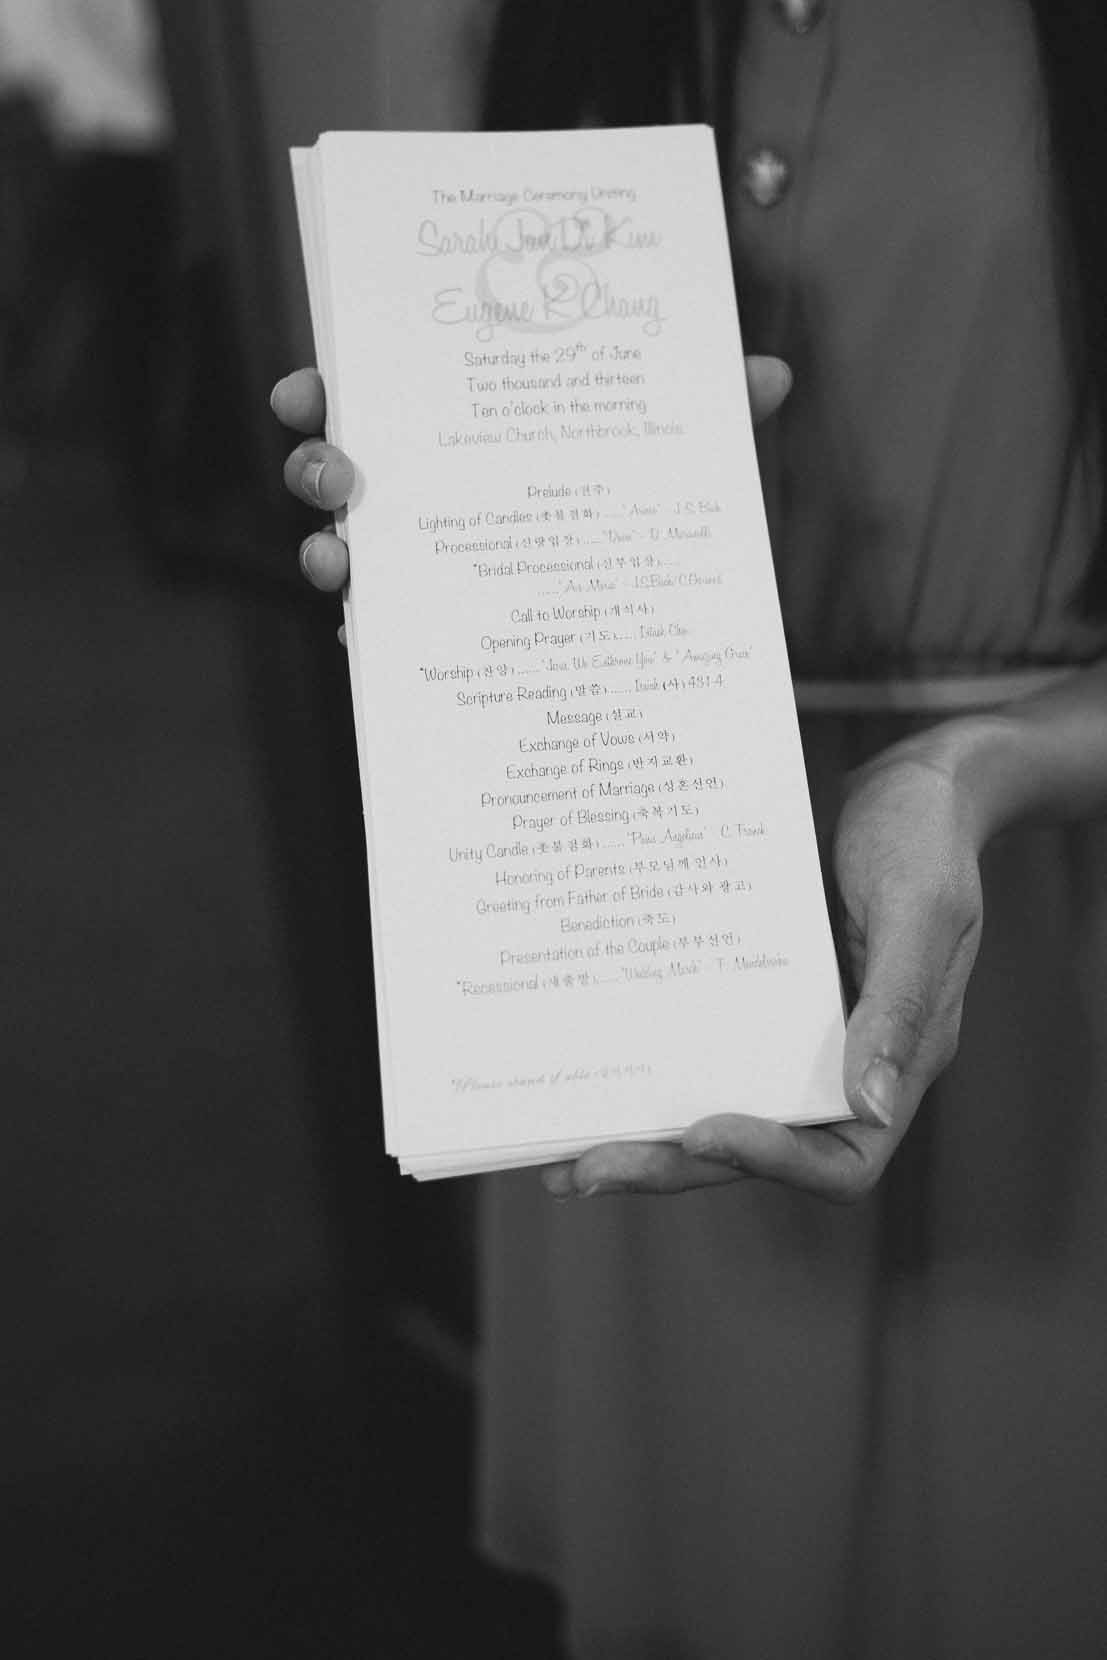 The Marriage Ceremony Uniting
Sarah Kim
&
Eugene K Chang
Saturday the 29th of June
Two thousand and thirteen
Ten o'clock in the morning
Lakeview Church, Northbrook, Illinois
Prelude (전주)
Lighting of Candles (촛불점화)......"Arioso" - J.S. Bach
Processional (신랑입장)......
*Bridal Processional (신부입장).....
......"Ave Maria" - J.S.Bach/C.Gounod
Call to Worship (개식사)
Opening Prayer (기도)......
*Worship (찬양)......"Jesus, We Enthrone You" & "Amazing Grace"
Scripture Reading (말씀)...... Isaiah (사) 43:1-4
Message (설교)
Exchange of Vows (서약)
Exchange of Rings (반지교환)
Pronouncement of Marriage (성혼선언)
Prayer of Blessing (축복기도)
Unity Candle (촛불점화)......"Panis Angelicus" - C. Franck
Honoring of Parents (부모님께 인사)
Greeting from Father of Bride (감사와 광고)
Benediction (축도)
Presentation of the Couple (부부선언)
*Recessional (새출발)......"Wedding March" - F. Mendelssohn
*Please stand if able